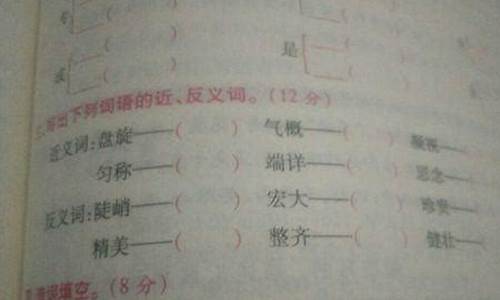 ( )
( )
( ) 是 ( )
( ) ( )
写出下列词语的近、反义词。(12分)
近义词:盘旋——( ) 气概——( )
匀称——( ) 端详——( ) 思念—
反义词:陡峭——( ) 宏大——( ) 珍贵—
精美——( ) 整齐——( ) 健壮—
词填空。(8分)